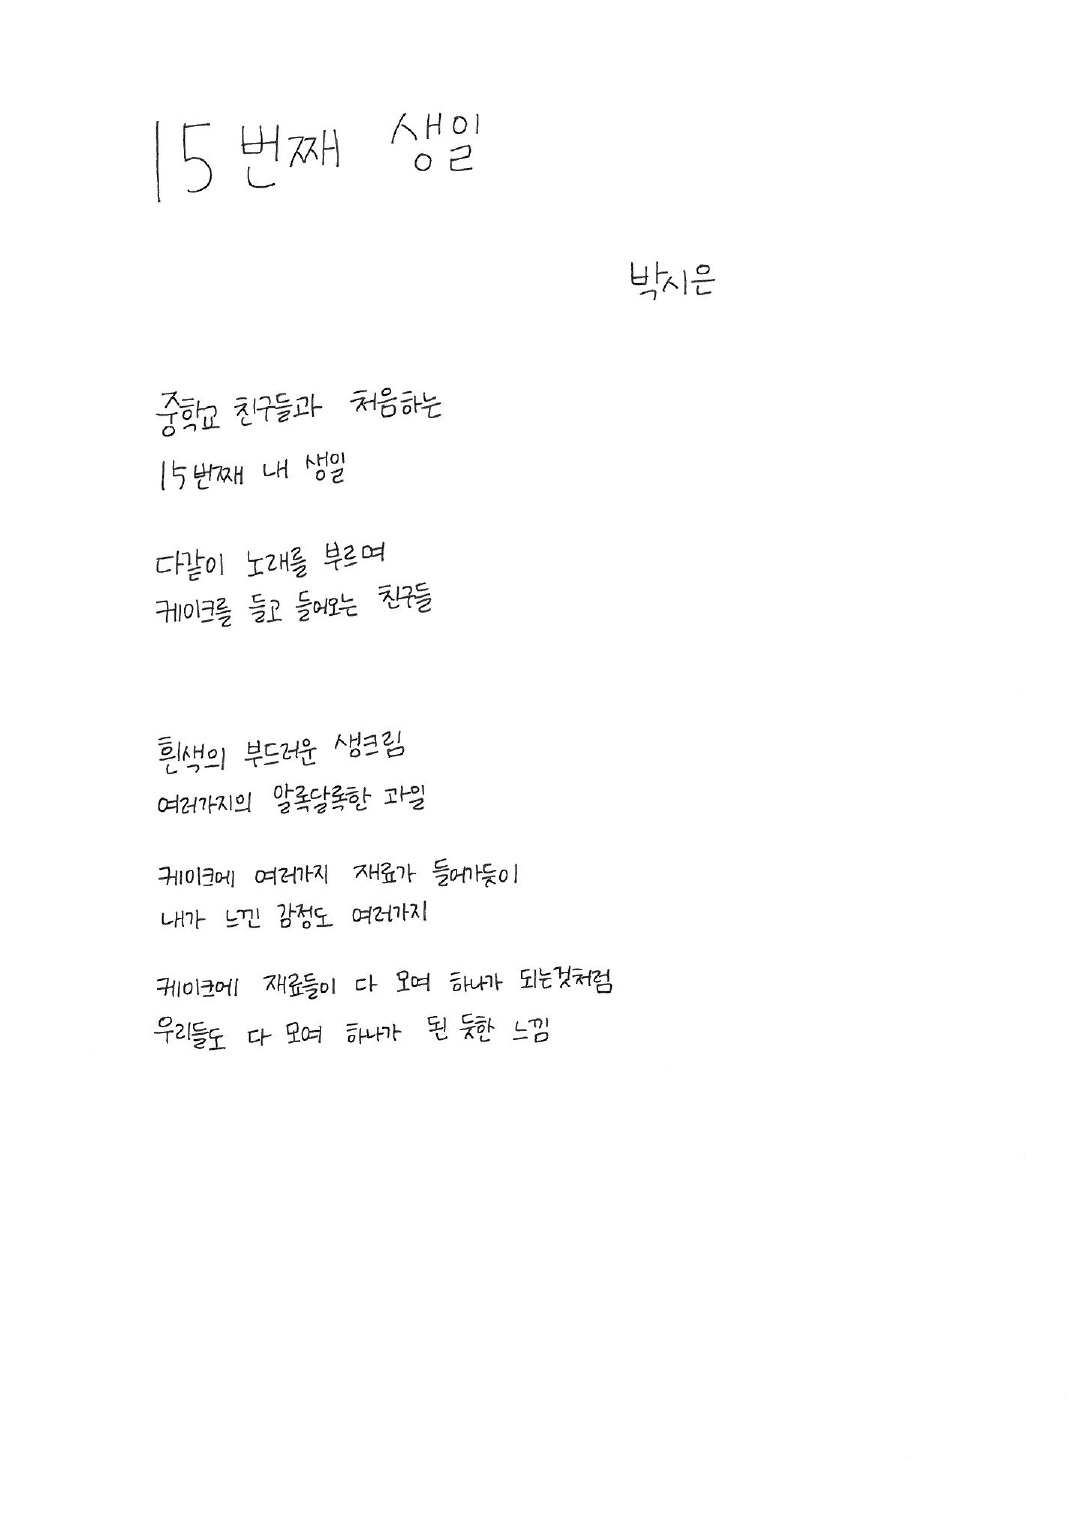 15번째 생일
박시은
중학교 친구들과 처음하는
15번째 내 생일
다같이 노래를 부르며
케이크를 들고 들어오는 친구들
흰색의 부드러운 생크림
여러가지의 알록달록한 과일
케이크에 여러가지 재료가 들어가듯이
내가 느낀 감정도 여러가지
케이크에 재료들이 다 모여 하나가 되는것처럼
우리들도 다 모여 하나가 된 듯한 느낌